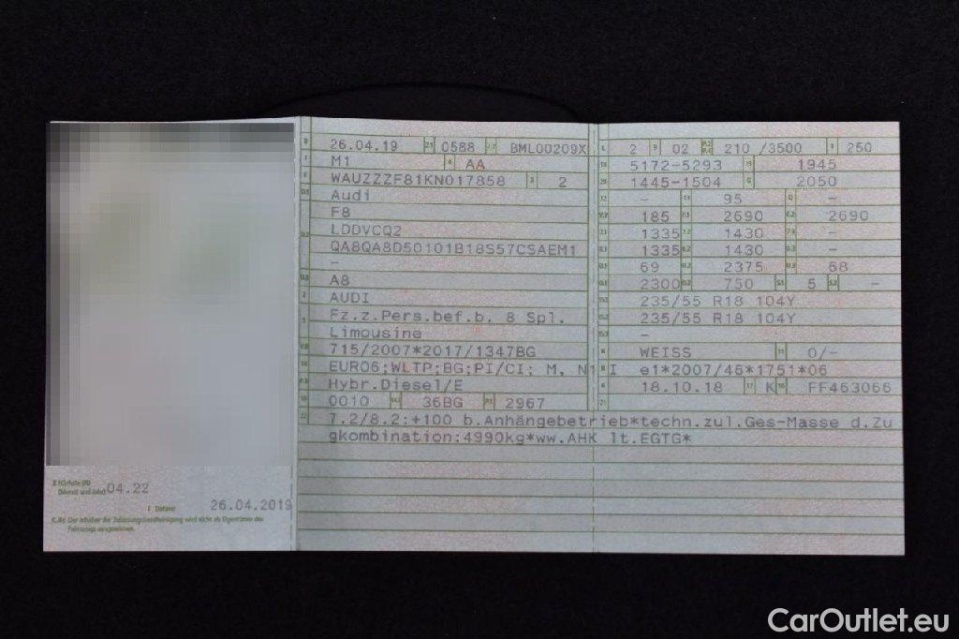 26.04.19 0588 BML00209X
M1 AA
WAUZZZF81KN017858 2
Audi
F8
LDDVCQ2
QA8QA8D50101B18S57CSAEM1
-
A8
AUDI
Fz.z.Pers.bef.b. 8 Spl.
Limousine
715/2007*2017/1347BG
EURO6;WLTP;BG;PI/CI; M, N1 I
Hybr.Diesel/E
0010 36BG 2967
2 02 210 /3500 250
5172-5293 1945
1445-1504 2050
- 95 -
185 2690 2690
1335 1430 -
1335 1430 -
69 2375 68
2300 750 5 -
235/55 R18 104Y
235/55 R18 104Y
-
WEISS 0/-
e1*2007/46*1751*06
18.10.18 K FF463066
7.2/8.2:+100 b.Anhängebetrieb*techn.zul.Ges-Masse d.Zu
gkombination:4990kg*ww.AHK lt.EGTG*
04.22
26.04.2019
CarOutlet.eu